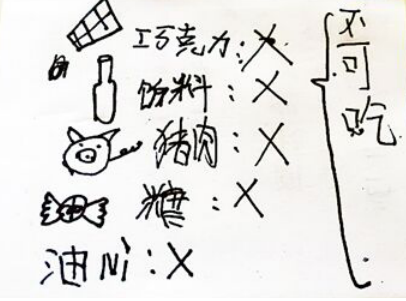 巧克力:X
饮料:X
猪肉:X
糖:X
油Nì:X
不可吃